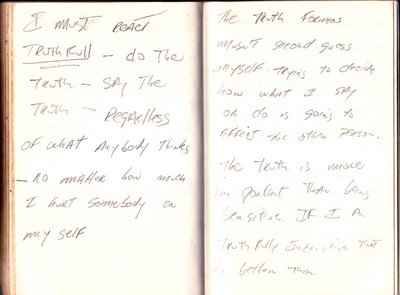 I must react
TRUTHFull – do The
Truth – SAy The
Truth – RegArless
OF what AnyBody Thinks
– no mAtter how much
I hurt Somebody or
my self
The Truth
mustn't second guess
myself. trying to decide
how what I say
or do is going to
effect the other person.
The truth is more
important than being
Sensitive. IF I A
Truthfully that
is better than